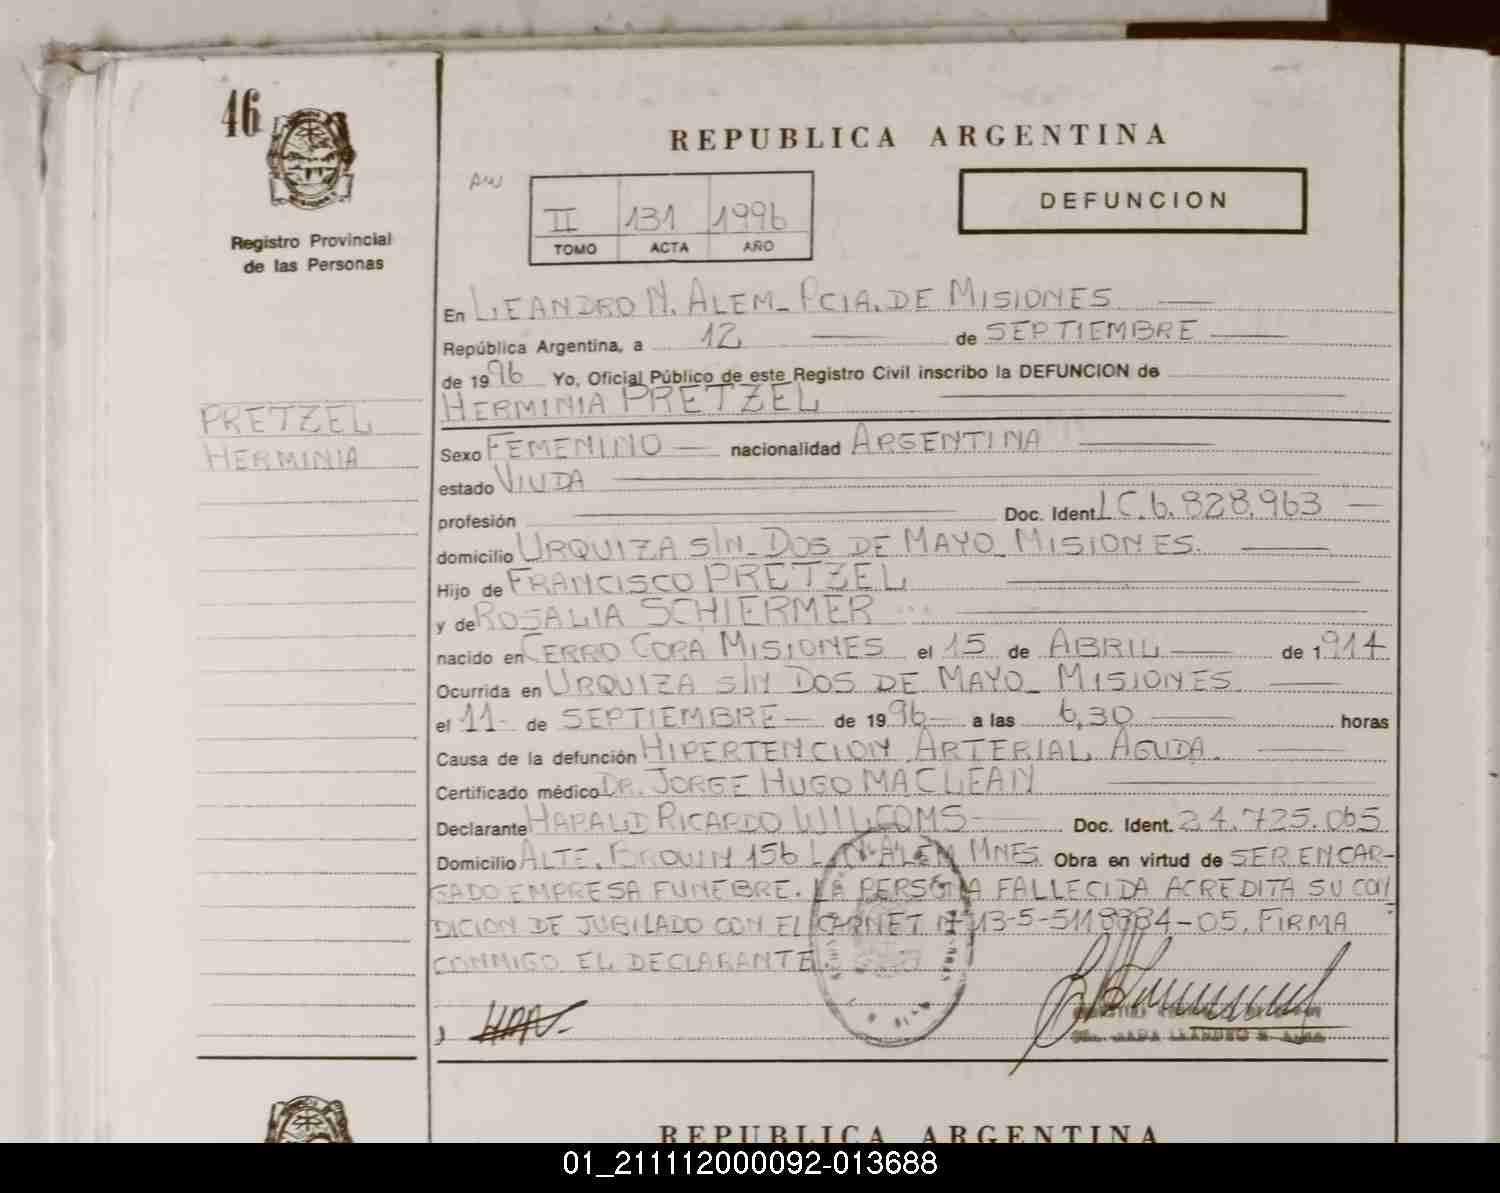 46
REPUBLICA ARGENTINA
DEFUNCION
II 131 1996
TOMO ACTA AÑO
Registro Provincial
de las Personas
En LEANDRO N. ALEM_PCIA. DE MISIONES
República Argentina, a 12 de SEPTIEMBRE
de 1996 Yo, Oficial Público de este Registro Civil inscribo la DEFUNCION de
HERMINIA PRETZEL
PRETZEL
HERMINIA
Sexo FEMENINO nacionalidad ARGENTINA
estado VIUDA
profesión Doc. Ident. LC. 6.828.963
domicilio URQUIZA S/N_DOS DE MAYO_MISIONES.
Hijo de FRANCISCO PRETZEL
y de ROSALIA SCHIERMER
nacido en CERRO CORA MISIONES el 15 de ABRIL de 1914
Ocurrida en URQUIZA S/N DOS DE MAYO_MISIONES
el 11 de SEPTIEMBRE de 1996 a las 6,30 horas
Causa de la defunción HIPERTENCION ARTERIAL AGUDA.
Certificado médico DR. JORGE HUGO MACLEAN
Declarante HARALD RICARDO Doc. Ident. 24.725.065
Domicilio ALTE. BROWN 156 L.N. ALEM MNES. Obra en virtud de SER ENCAR-
GADO EMPRESA FUNEBRE. LA PERSONA FALLECIDA ACREDITA SU CON
DICION DE JUBILADO CON EL CARNET Nº 13-5-5118384-05. FIRMA
CONMIGO EL DECLARANTE.
REPUBLICA ARGENTINA
01_211112000092-013688